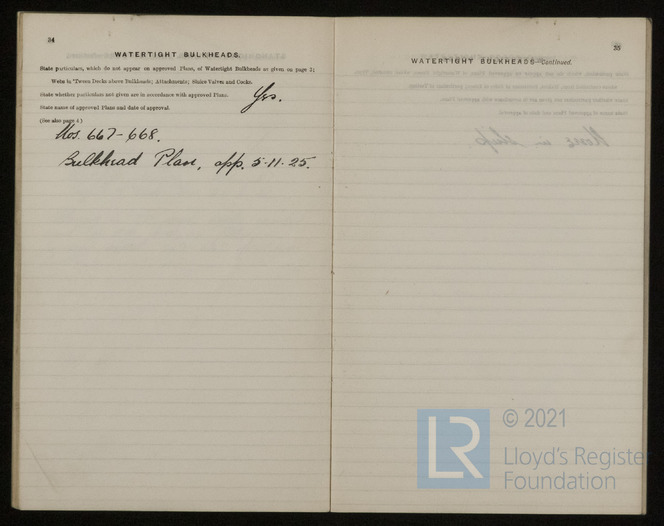 34
WATERTIGHT BULKHEADS.
State particulars, which do not appear on approved Plans, of Watertight Bulkheads as given on page 3;
Webs in 'Tween Decks above Bulkheads; Attachments; Sluice Valves and Cocks.
State whether particulars not given are in accordance with approved Plans. Yes.
State name of approved Plans and date of approval
(See also page 4.)
Nos. 667-668.
Bulkhead Plan, app. 5-11-25.
35
WATERTIGHT BULKHEADS—Continued.
LR
© 2021
Lloyd's Register
Foundation